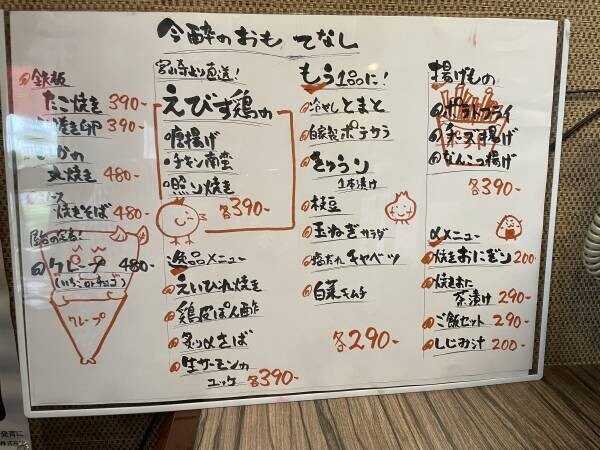 今酔のおもてなし
鉄板
たこ焼き 390-
焼き卵 390-
いかの
丸焼き 480-
ソース
焼きそば 480-
クレープ 480-
(いちごorチョコ)
クレープ
宮崎より直送!
えびす鶏の
唐揚げ
チキン南蛮
照り焼き
各390-
逸品メニュー
えいひれ焼き
鶏皮ぽん酢
炙り〆さば
生サーモンの
ユッケ 各390-
もう1品に!
冷やしトマト
自家製ポテサラ
きゅうり
1本漬け
枝豆
玉ねぎサラダ
塩だれキャベツ
白菜キムチ
各290-
揚げもの
ポテトフライ
チーズ揚げ
なんこつ揚げ
各390-
〆メニュー
焼きおにぎり 200-
焼きおに
茶漬け 290-
ご飯セット 290-
しじみ汁 200-